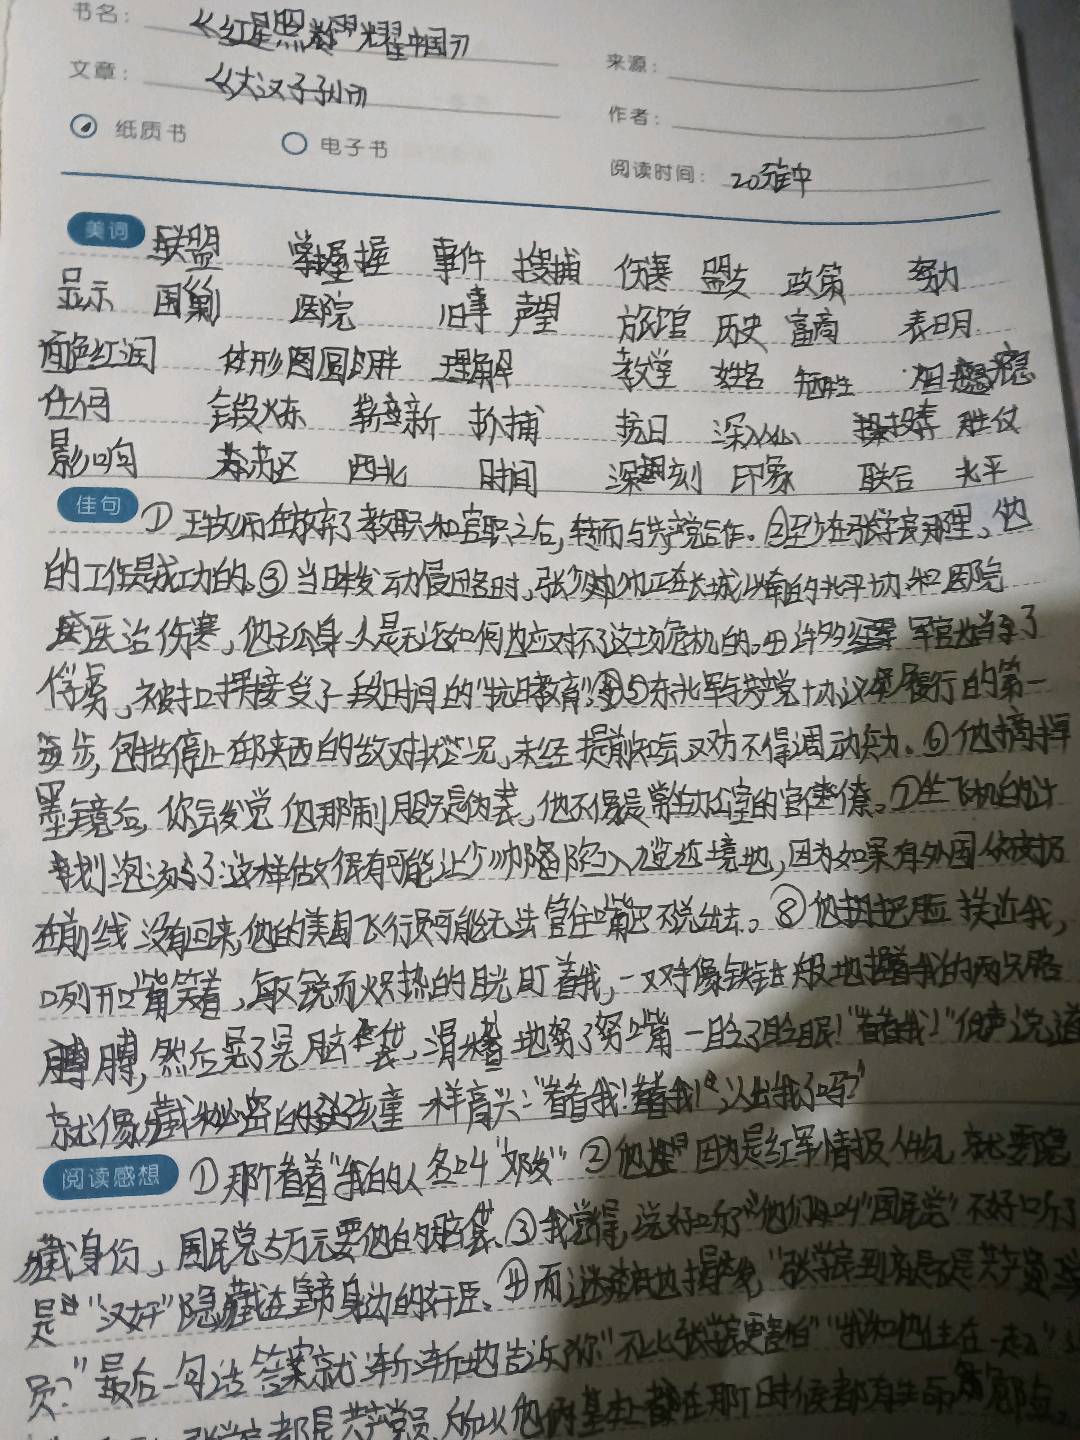 书名： 《红星照耀中国》
来源：
文章： 《大汉子孙》
作者：
纸质书 电子书
阅读时间： 20分钟
美词 联盟 掌握 握 事件 搜捕 伤寒 盟友 政策 努力
显示 围剿 医院 旧事 声望 旅馆 历史 富商 表明
面色红润 体形圆圆胖胖 理解 教堂 姓名 牺牲
任何 锻炼 崭新 抓捕 抗日 深入人心 投奔 胜仗
影响 苏区 西北 时间 深刻 印象 联合 北平
佳句 ①王牧师在放弃了教职和官职之后，转而与共产党合作。②至少在张学良那里，他
的工作是成功的。③当日本发动侵略时，张少帅正在长城以南的北平协和医院
医治伤寒，他孤身一人是无论如何也应对不了这场危机的。④许多 军官也当了
俘虏，被扣押接受了一段时间的“抗日教育”⑤东北军与共产党协议履行的第一
步，包括停止在陕西的敌对状况，未经提前知会双方不得调动兵力。⑥他摘掉
墨镜后，你会发觉他那制服只是伪装，他不像是常坐办公室的官僚。⑦坐飞机的计
划泡汤了这样做很有可能让少帅陷入尴尬境地，因为如果有外国人被扔
在前线没有回来，他的美国飞行员可能无法管住嘴巴不说出去。⑧他把脸挨近我，
咧开嘴笑着，敏锐而炽热的目光盯着我，一双手像铁钳般地握着我的两只胳
膊，然后晃了晃脑袋，滑稽地努了努嘴一眨了眨眼！“看看我！”低声说道
就像藏秘密的孩童一样高兴：“看看我！看看我！认出我了吗？”
阅读感想 ①那个“看着”我的人名叫“邓发”②他 因为是红军情报人物，就要隐
藏身份，国民党5万元要他的脑袋。③我觉得，说好听他们叫“国民党”不好听了
是“汉奸”隐藏在皇帝身边的奸臣。④而 “张学良到底是不是共产党
员？”最后一句话答案就渐渐地告诉你“ ”“我和他住在一起”
张学良都是共产党员，所以他们 在那个时候都有生命